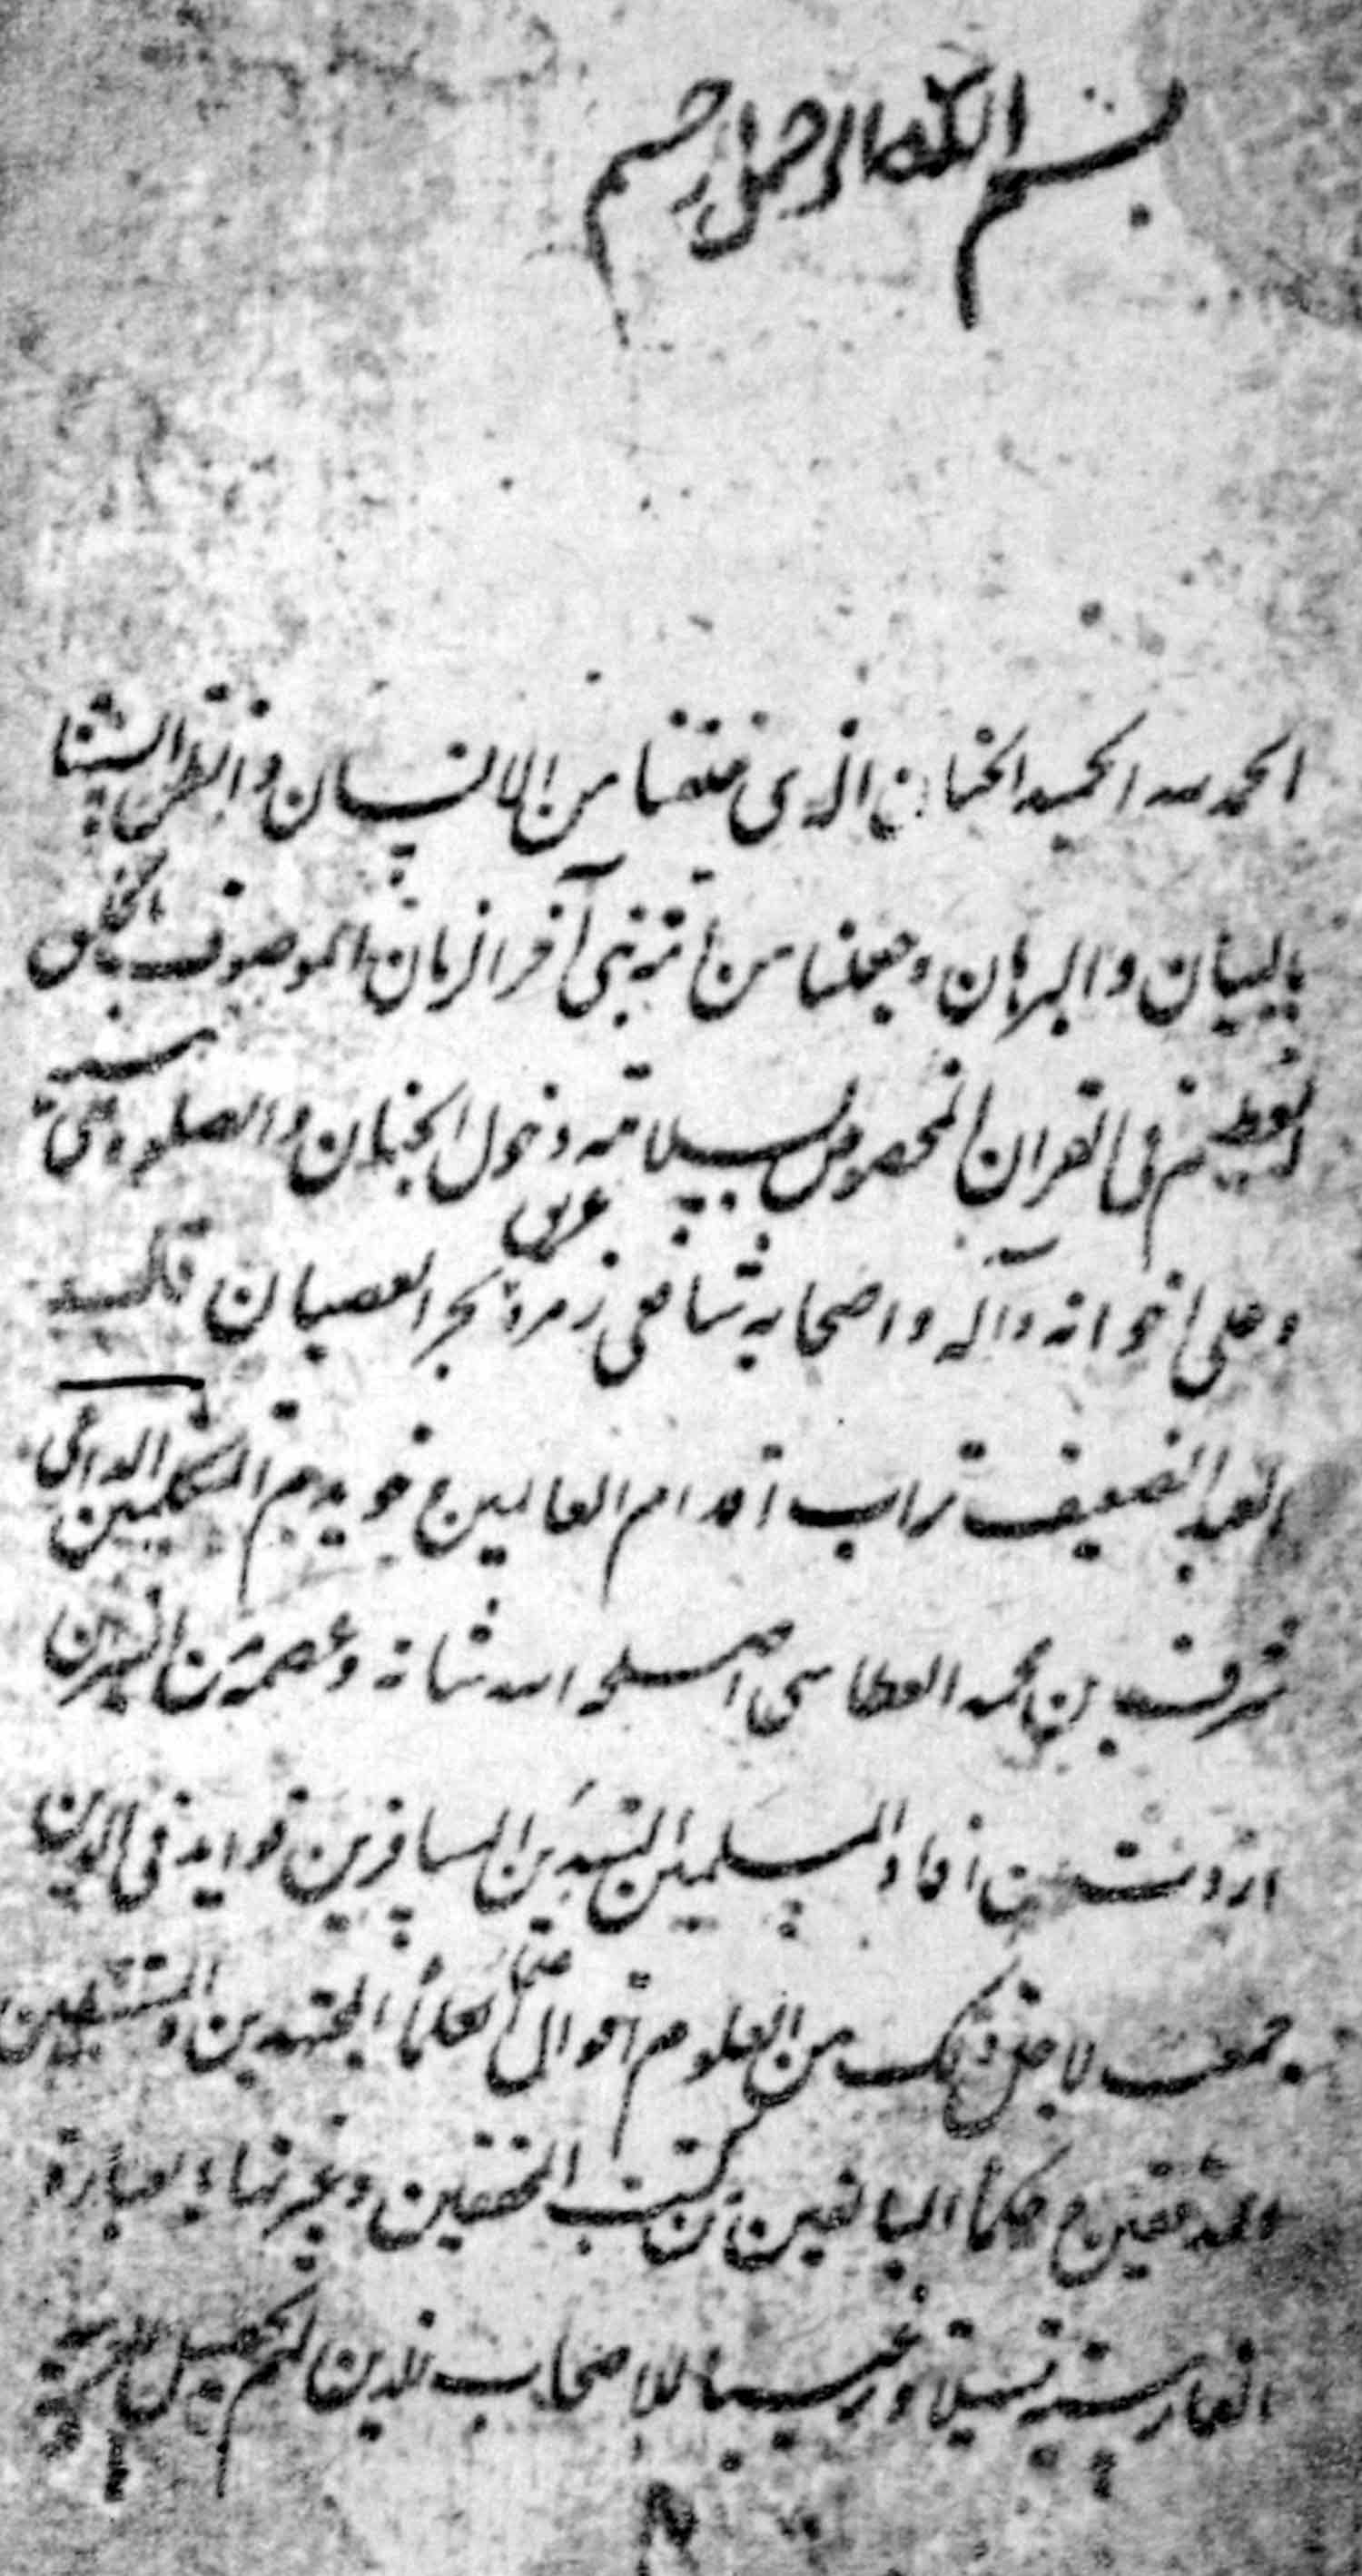 بسم الله الرحمن الرحيم
الحمد لله الحميد الحنان الذى خلقنا من الانسان و انطق السنا
بالبيان و البرهان و جعلنا من امة نبى آخر الزمان الموصوف بالخلق
العظيم فى القران المخصوص بسلامة دخول الجنان و الصلوة على
و على اخوانه و آله و اصحابه شافعى زمرة غريق بحر العصيان قال
العبد الضعيف تراب اقدام العالمين خويدم المتكلمين الداعى
شرف بن محمد العطاسى اصلح الله شانه و عصمه من
اردت من افاد المسلمين المسافرين فوايد فى الدين
جمعت لاجل ذلك من العلوم اقوال علما المجتهدين
و المدققين حكما البالغين من كتب المحققين و غيرتها بعبارة
الفارسية تسهيلا و ترغيبا للاصحاب الذين لهم تحصيل